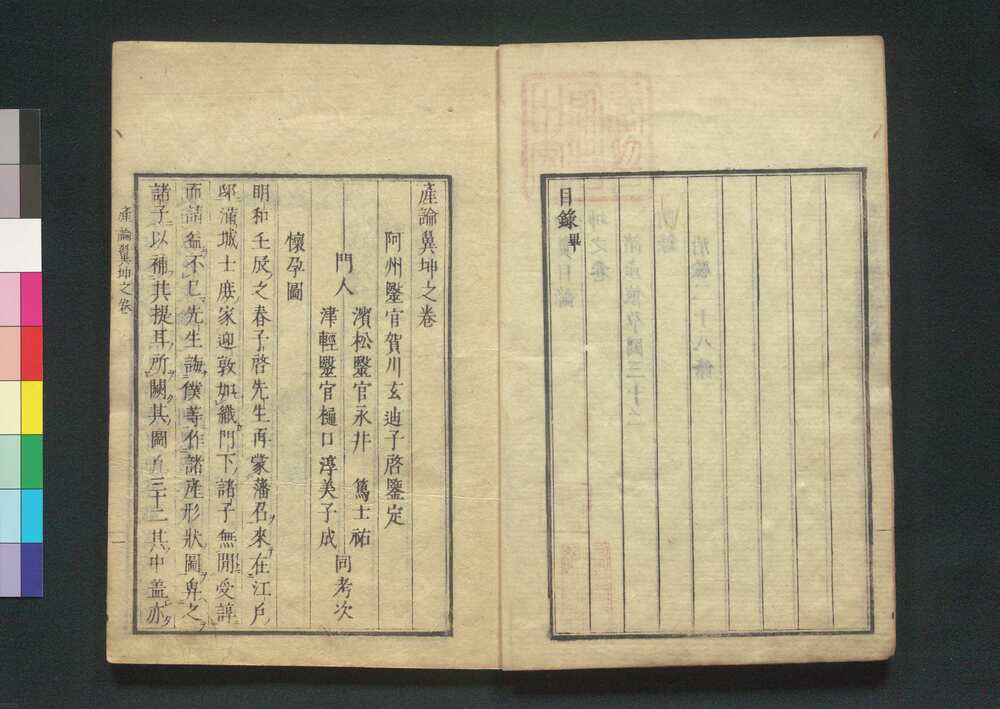 目錄畢
產論翼坤之卷
阿州醫官賀川玄迪子啓鑒定
門人
濱松醫官永井篤士祐
津輕醫官樋口淳美子成
同考次
懷孕圖
明和壬辰之春子啓先生再蒙藩召來在江戶
邸滿城士庶家迎敦如織門下諸子無閒受諄
而請益不已先生誨僕等作諸產形狀圖與之
諸子以補其提耳所闕其圖凡三十二其中蓋亦
產論翼坤之卷